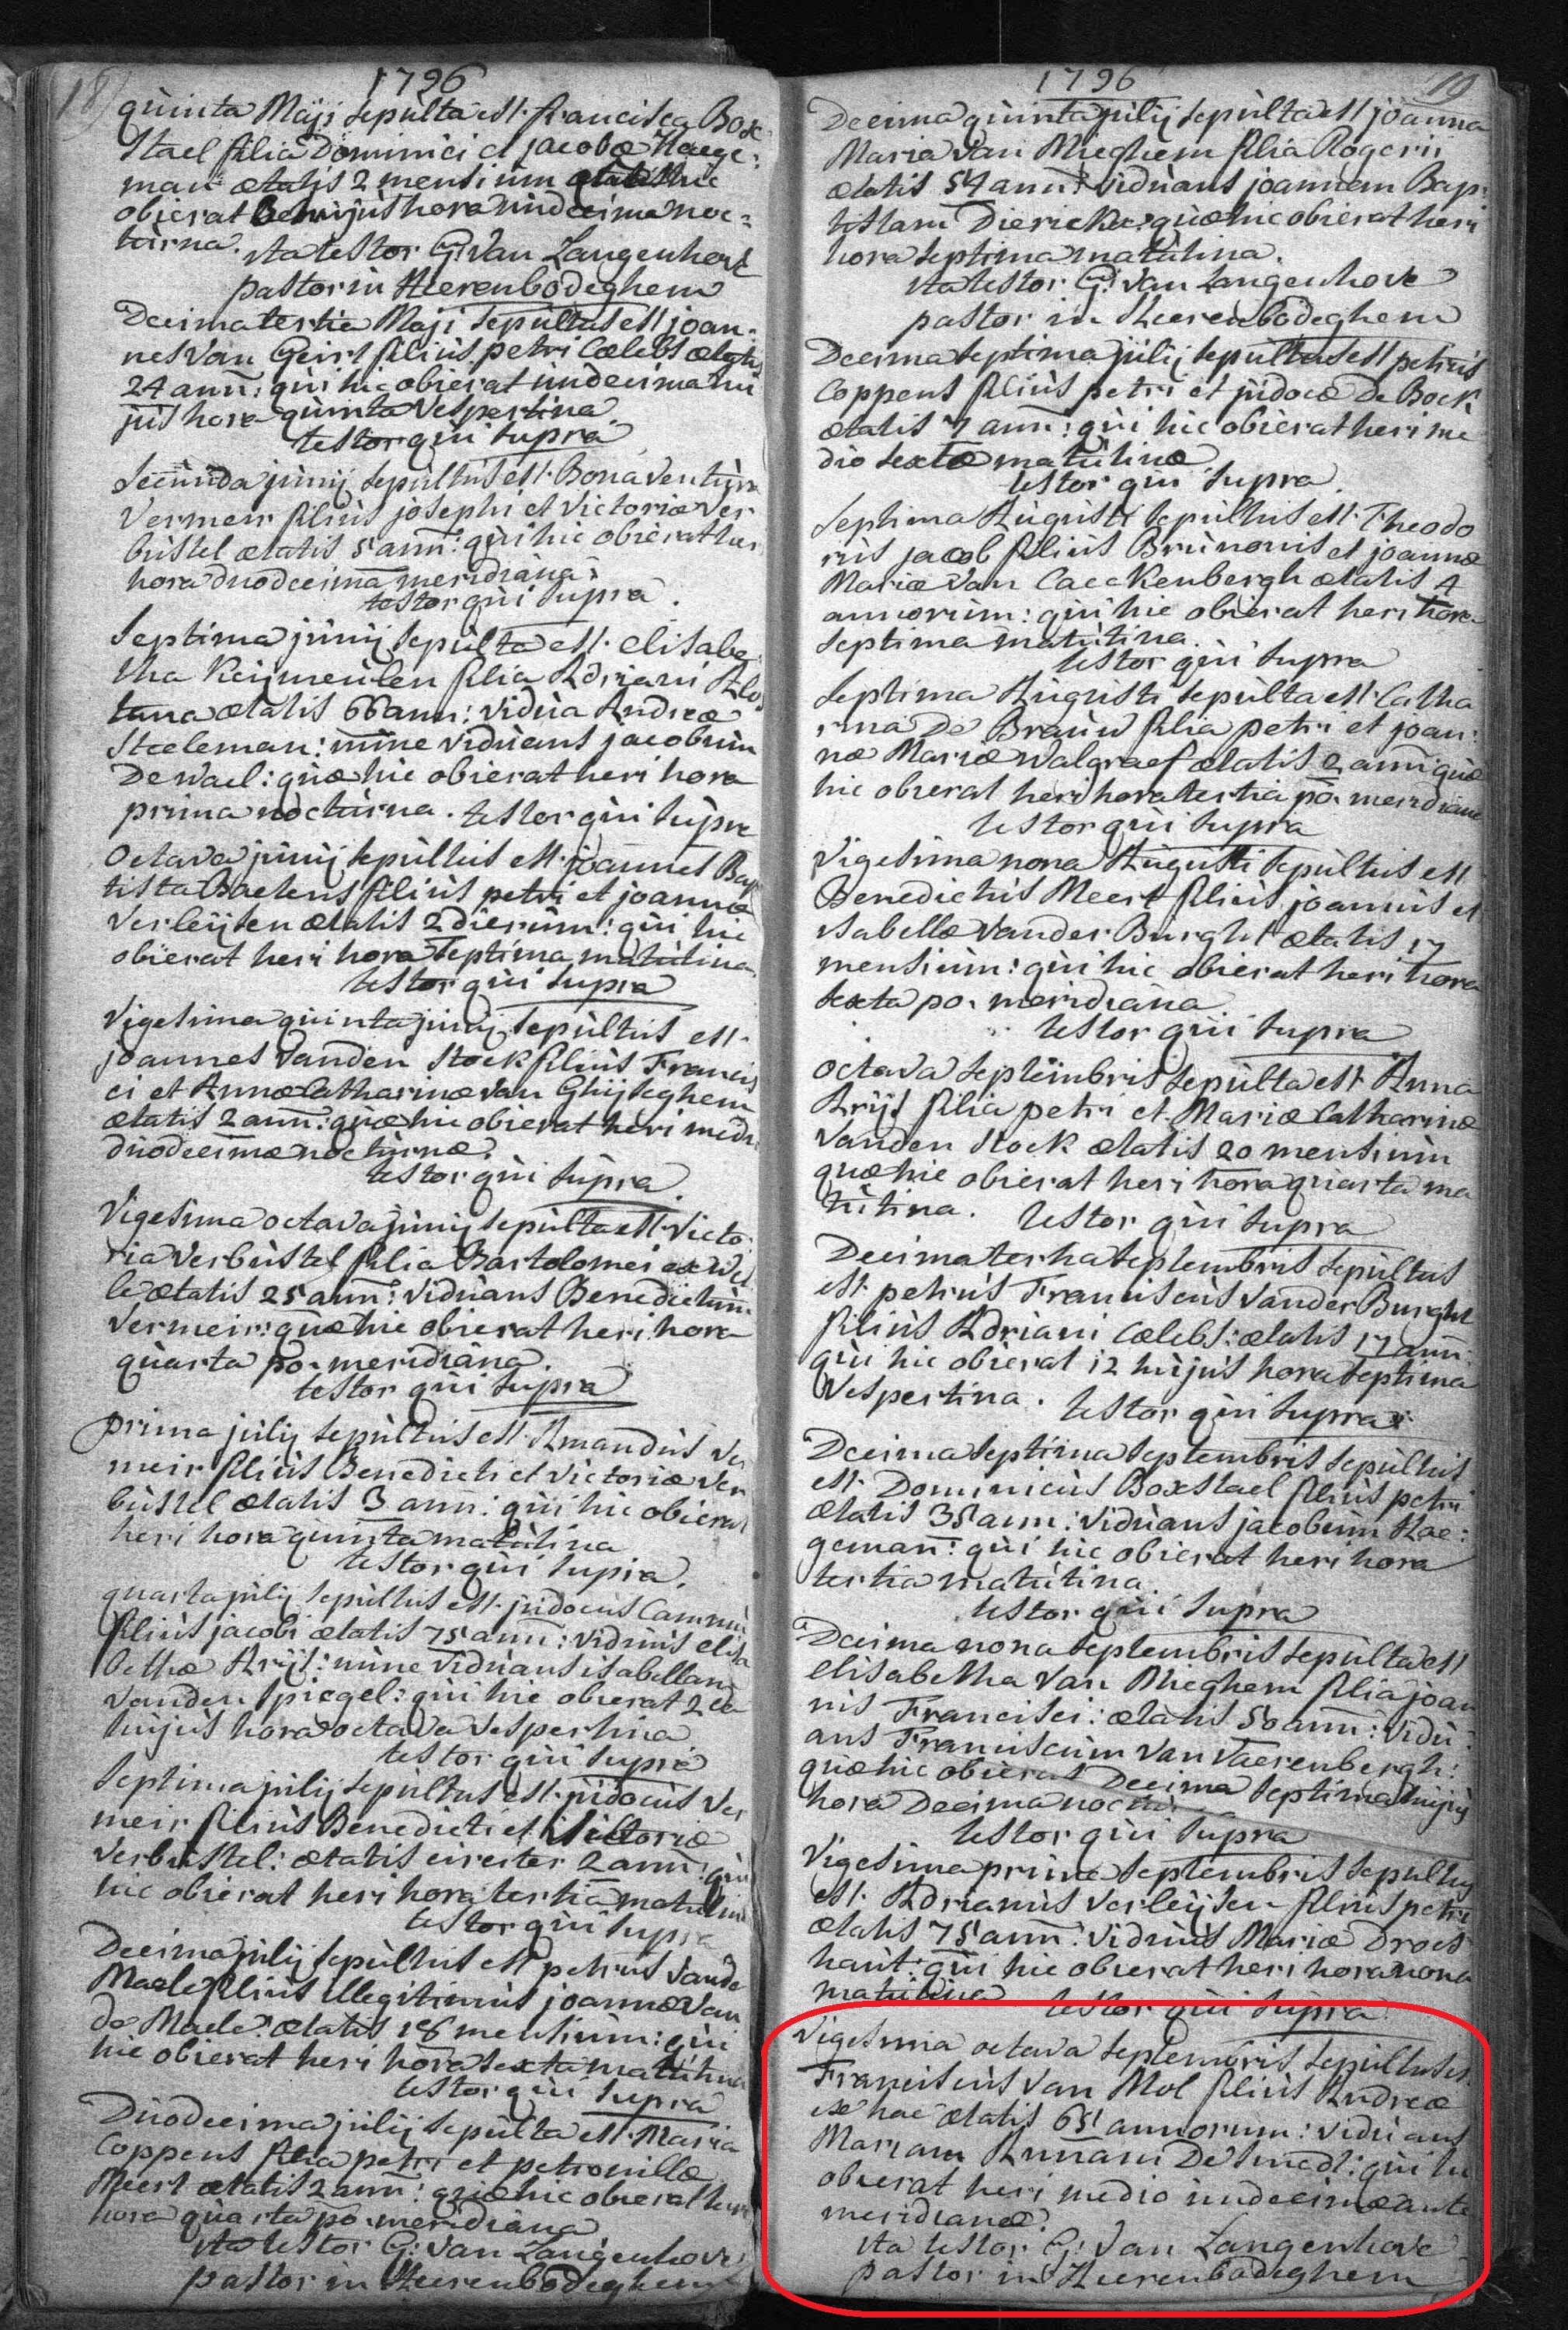 18)
1796
quinta Maji sepulta est francisca Box
stael filia Dominici et jacobæ Haege:
man ætatis 2 mensium hic
obierat hujus hora undecima noc:
turna. ita testor G: Van Langenhove
pastor in Heerenbodeghem
Decima tertia Maji sepultus est joan:
nes Van Geirt filius petri Cælebs ætatis
24 ann: qui hic obierat undecima hu
jus hora quinta Vespertina
testor qui supra
Secunda junij sepultus est Bonaventura
Vermeir filius josephi et Victoriæ Ver
bustel ætatis 5 ann: qui hic obierat heri
hora duodecima meridiana
testor qui supra.
Septima junij sepulta est elisabe
tha Keijmeulen filia Adriani Alos
tana ætatis 66 ann: Vidua Andreæ
Steeleman: nunc viduans jacobum
De wael: quæ hic obierat heri hora
prima nocturna. testor qui supra
Octava junij sepultus est joannes Bap
tista Baetens filius petri et joannæ
Verleijsen ætatis 2 dierum: qui hic
obierat heri hora septima matutina.
testor qui supra
Vigesima quinta junij sepultus est
joannes Vanden Stock filius Francis
ci et Annæ Catharinæ Van Ghijseghem
ætatis 2 ann: quæ hic obierat heri medio
duodecimæ nocturnæ.
testor qui supra.
Vigesima octava junij sepulta est Victo
ria Verbustel filia Bartolomei ex Wel
le ætatis 25 ann: Viduans Benedictum
Vermeir: quæ hic obierat heri hora
quarta po. meridiana.
testor qui supra
prima julij sepultus est Amandus Ver
meir filius Benedicti et Victoriæ Ver
bustel ætatis 3 ann: qui hic obierat
heri hora quinta matutina
testor qui supra.
quarta julij sepultus est judocus Cammu
filius jacobi ætatis 75 ann: viduus elisa
bethæ Arijs: nunc Viduans isabellam
Vanden Spiegel: qui hic obierat 2da
hujus hora octava Vespertina
testor qui supra
Septima julij sepultus est judocus Ver
meir filius Benedicti et Victoriæ
Verbustel: ætatis circiter 2 ann: qui
hic obierat heri hora tertia matutina
testor qui supra
Decima julij sepultus est petrus Vande
Maele filius illegitimus joannæ Van
de Maele: ætatis 18 mensium: qui
hic obierat heri hora sexta matutina
testor qui supra
Duodecima julij sepulta est Maria
Coppens filia petri et petronillæ
Meert ætatis 2 ann: quæ hic obierat heri
hora quarta po. meridiana
ita testor G: Van Langenhove
pastor in Heerenbodeghem
1796
19
Decima quinta julij sepulta est joanna
Maria Van Mieghem filia Rogerii
ætatis 54 ann: viduans joannem Bap:
tistam Dierickx: quæ hic obierat heri
hora septima matutina.
ita testor G: Van Langenhove
pastor in Heerenbodeghem
Decima septima julij sepultus est petrus
Coppens filius petri et judocæ De Bock
ætatis 7 ann: qui hic obierat heri me
dio sextæ matutinæ
testor qui supra.
Septima Augusti sepultus est Theodo
rus jacob filius Brunonis et joannæ
Mariæ Van Caeckenbergh ætatis 4
annorum: qui hic obierat heri hora
septima matutina.
testor qui supra
Septima Augusti sepulta est Catha
rina De Brauw filia petri et joan:
næ Mariæ Walgraef ætatis 2 ann: quæ
hic obierat heri hora tertia po. meridiana
testor qui supra
Vigesima nona Augusti sepultus est
Benedictus Meert filius joannis et
isabellæ Vander Burght ætatis 17
mensium: qui hic obierat heri hora
sexta po. meridiana
testor qui supra
octava septembris sepulta est Anna
Arijs filia petri et Mariæ Catharinæ
Vanden Stock ætatis 20 mensium
quæ hic obierat heri hora quarta ma
tutina. testor qui supra
Decima tertia septembris sepultus
est petrus Franciscus Vander Burght
filius Adriani Cælebs: ætatis 17 ann:
qui hic obierat 12 hujus hora septima
Vespertina. testor qui supra
Decima septima septembris sepultus
est Dominicus Boxstael filius petri
ætatis 35 ann: Viduans jacobam Hae:
geman: qui hic obierat heri hora
tertia matutina.
testor qui supra
Decima nona septembris sepulta est
elisabetha Van Mieghem filia joan
nis Francisci: ætatis 50 ann: Vidu:
ans Franciscum Van Vaerenbergh:
quæ hic obierat Decima septima hujus
hora Decima noctur
testor qui supra
Vigesima prima septembris sepultus
est Adrianus Verleijsen filius petri
ætatis 75 ann: Viduus Mariæ Droes
haut: qui hic obierat heri hora nona
matutina testor qui supra
Vigesima octava septembris sepultus est
Franciscus Van Mol filius Andreæ
ex hac ætatis 65 annorum: viduans
Mariam Annam De smedt: qui hic
obierat heri medio undecimæ ante
meridianæ.
ita testor G: Van Langenhove
pastor in Heerenbodeghem